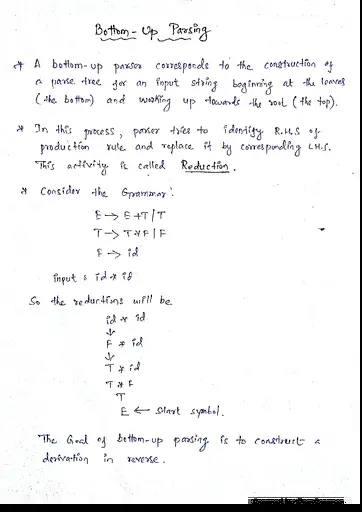 Bottom-Up Parsing
* A bottom-up parser corresponds to the construction of
a parse tree for an input string beginning at the leaves
(the bottom) and working up towards the root (the top).
* In this process, parser tries to identify R.H.S of
production rule and replace it by corresponding L.H.S.
This activity is called Reduction.
* Consider the Grammar:
E → E+T/T
T → T*F/F
F → id
input : id * id
So the reductions will be
id * id
↓
F * id
↓
T * id
T * F
T
E ← start symbol.
The Goal of bottom-up parsing is to construct a
derivation in reverse.